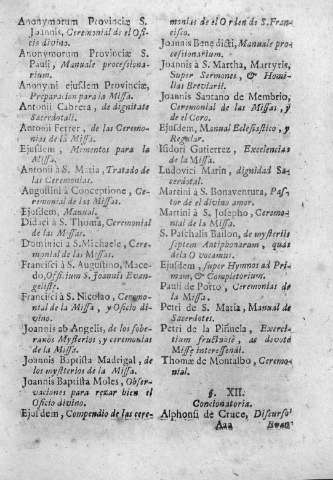 Anonymorum Provinciæ S.
Joannis, Ceremonial de el Ofi-
cio divino.
Anonymorum Provinciæ S.
Pauli, Manuale procesiona-
rium.
Anonymi ejusdem Provinciæ,
Preparacion para la Missa.
Antonii Cabrera, de dignitate
Sacerdotali.
Antonii Ferrer, de las Ceremo-
nias de la Missa.
Ejusdem, Mementos para la
Missa.
Antonii à S. Maria, Tratado de
las Ceremonias.
Augustini à Conceptione, Ce-
remonial de las Missas.
Ejusdem, Manual.
Didaci à S. Thoma, Ceremonial
de las Missas.
Dominici à S. Michaele, Cere-
monial de las Missas.
Francisci à S. Augustino, Mace-
do, Officium S. Joannis Evan-
gelistæ.
Francisci à S. Nicolao, Ceremo-
nial de la Missa, y Oficio di-
vino.
Joannis ab Angelis, de los sobe-
ranos Mysterios, y ceremonias
de la Missa.
Joannis Baptista Madrigal, de
los mysterios de la Missa.
Joannis Baptista Moles, Obser-
vaciones para rezar bien el
Oficio divino.
Ejusdem, Compendio de las cere-
monias de el Orden de S. Fran-
cisco.
Joannis Benedicti, Manuale pro-
cesionarium.
Joannis à S. Martha, Martyris,
Super Sermones, & Homi-
lias Breviarii.
Joannis Santano de Membrio,
Ceremonial de las Missas, y
de el Coro.
Ejusdem, Manual Eclesiastico, y
Regular.
Isidori Gutierrez, Excelencias
de la Missa.
Ludovici Marin, dignidad Sa-
cerdotal.
Martini à S. Bonaventura, Pas-
tor de el divino amor.
Martini à S. Josepho, Ceremo-
nial de la Missa.
S. Paschalis Bailon, de mysteriis
septem Antiphonarum, quas
dela O vocamus.
Ejusdem, super Hymnos ad Pri-
mam, & Completorium.
Pauli de Porto, Ceremonias de
la Missa.
Petri de S. Maria, Manual de
Sacerdotes.
Petri de la Piñuela, Exerci-
tium fructuosè, ac devotè
Missæ interessendi.
Thomæ de Montalbo, Ceremo-
nial.
§. XII.
Concionatoria.
Alphonsi de Cruce, Discursos
Aaa